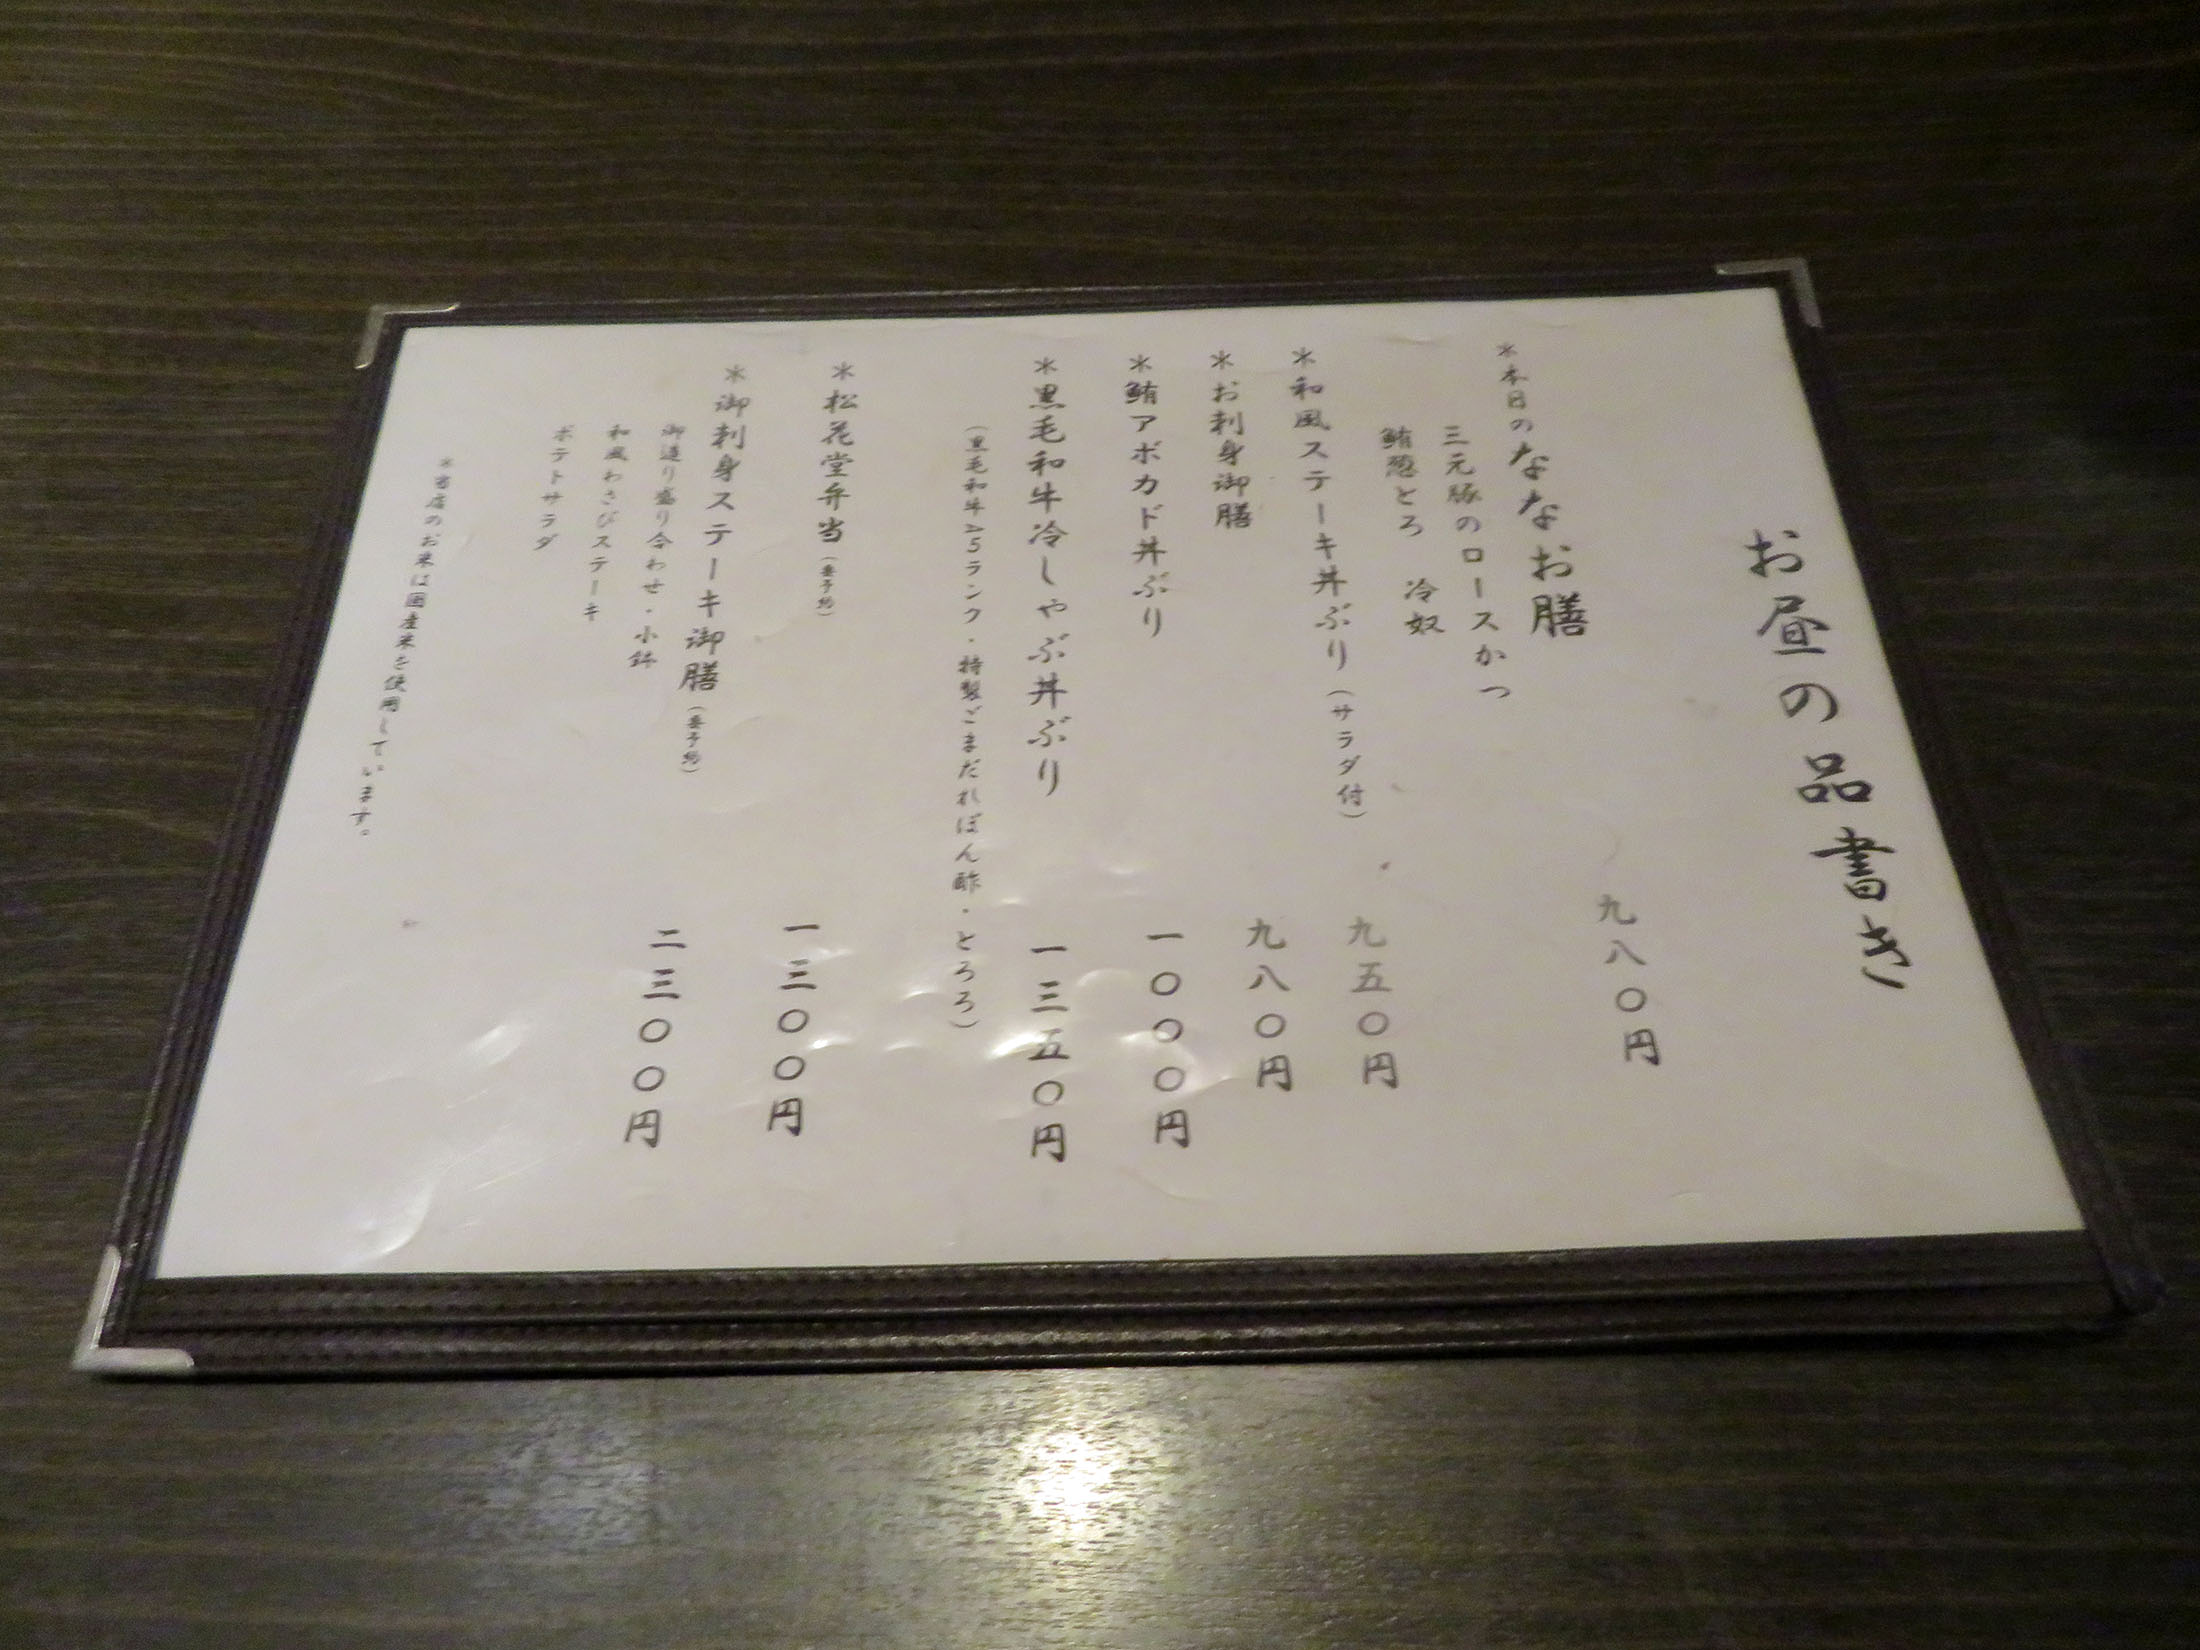 お昼の品書き
*本日のななお膳 九八〇円
三元豚のロースかつ
鮪葱とろ 冷奴
*和風ステーキ丼ぶり(サラダ付) 九五〇円
*お刺身御膳 九八〇円
*鮪アボカド丼ぶり 一〇〇〇円
*黒毛和牛冷しゃぶ丼ぶり 一三五〇円
(黒毛和牛A5ランク・特製ごまだれぽん酢・とろろ)
*松花堂弁当(要予約) 一三〇〇円
*御刺身ステーキ御膳(要予約) 二三〇〇円
御造り盛り合わせ・小鉢
和風わさびステーキ
ポテトサラダ
*当店のお米は国産米を使用しています。